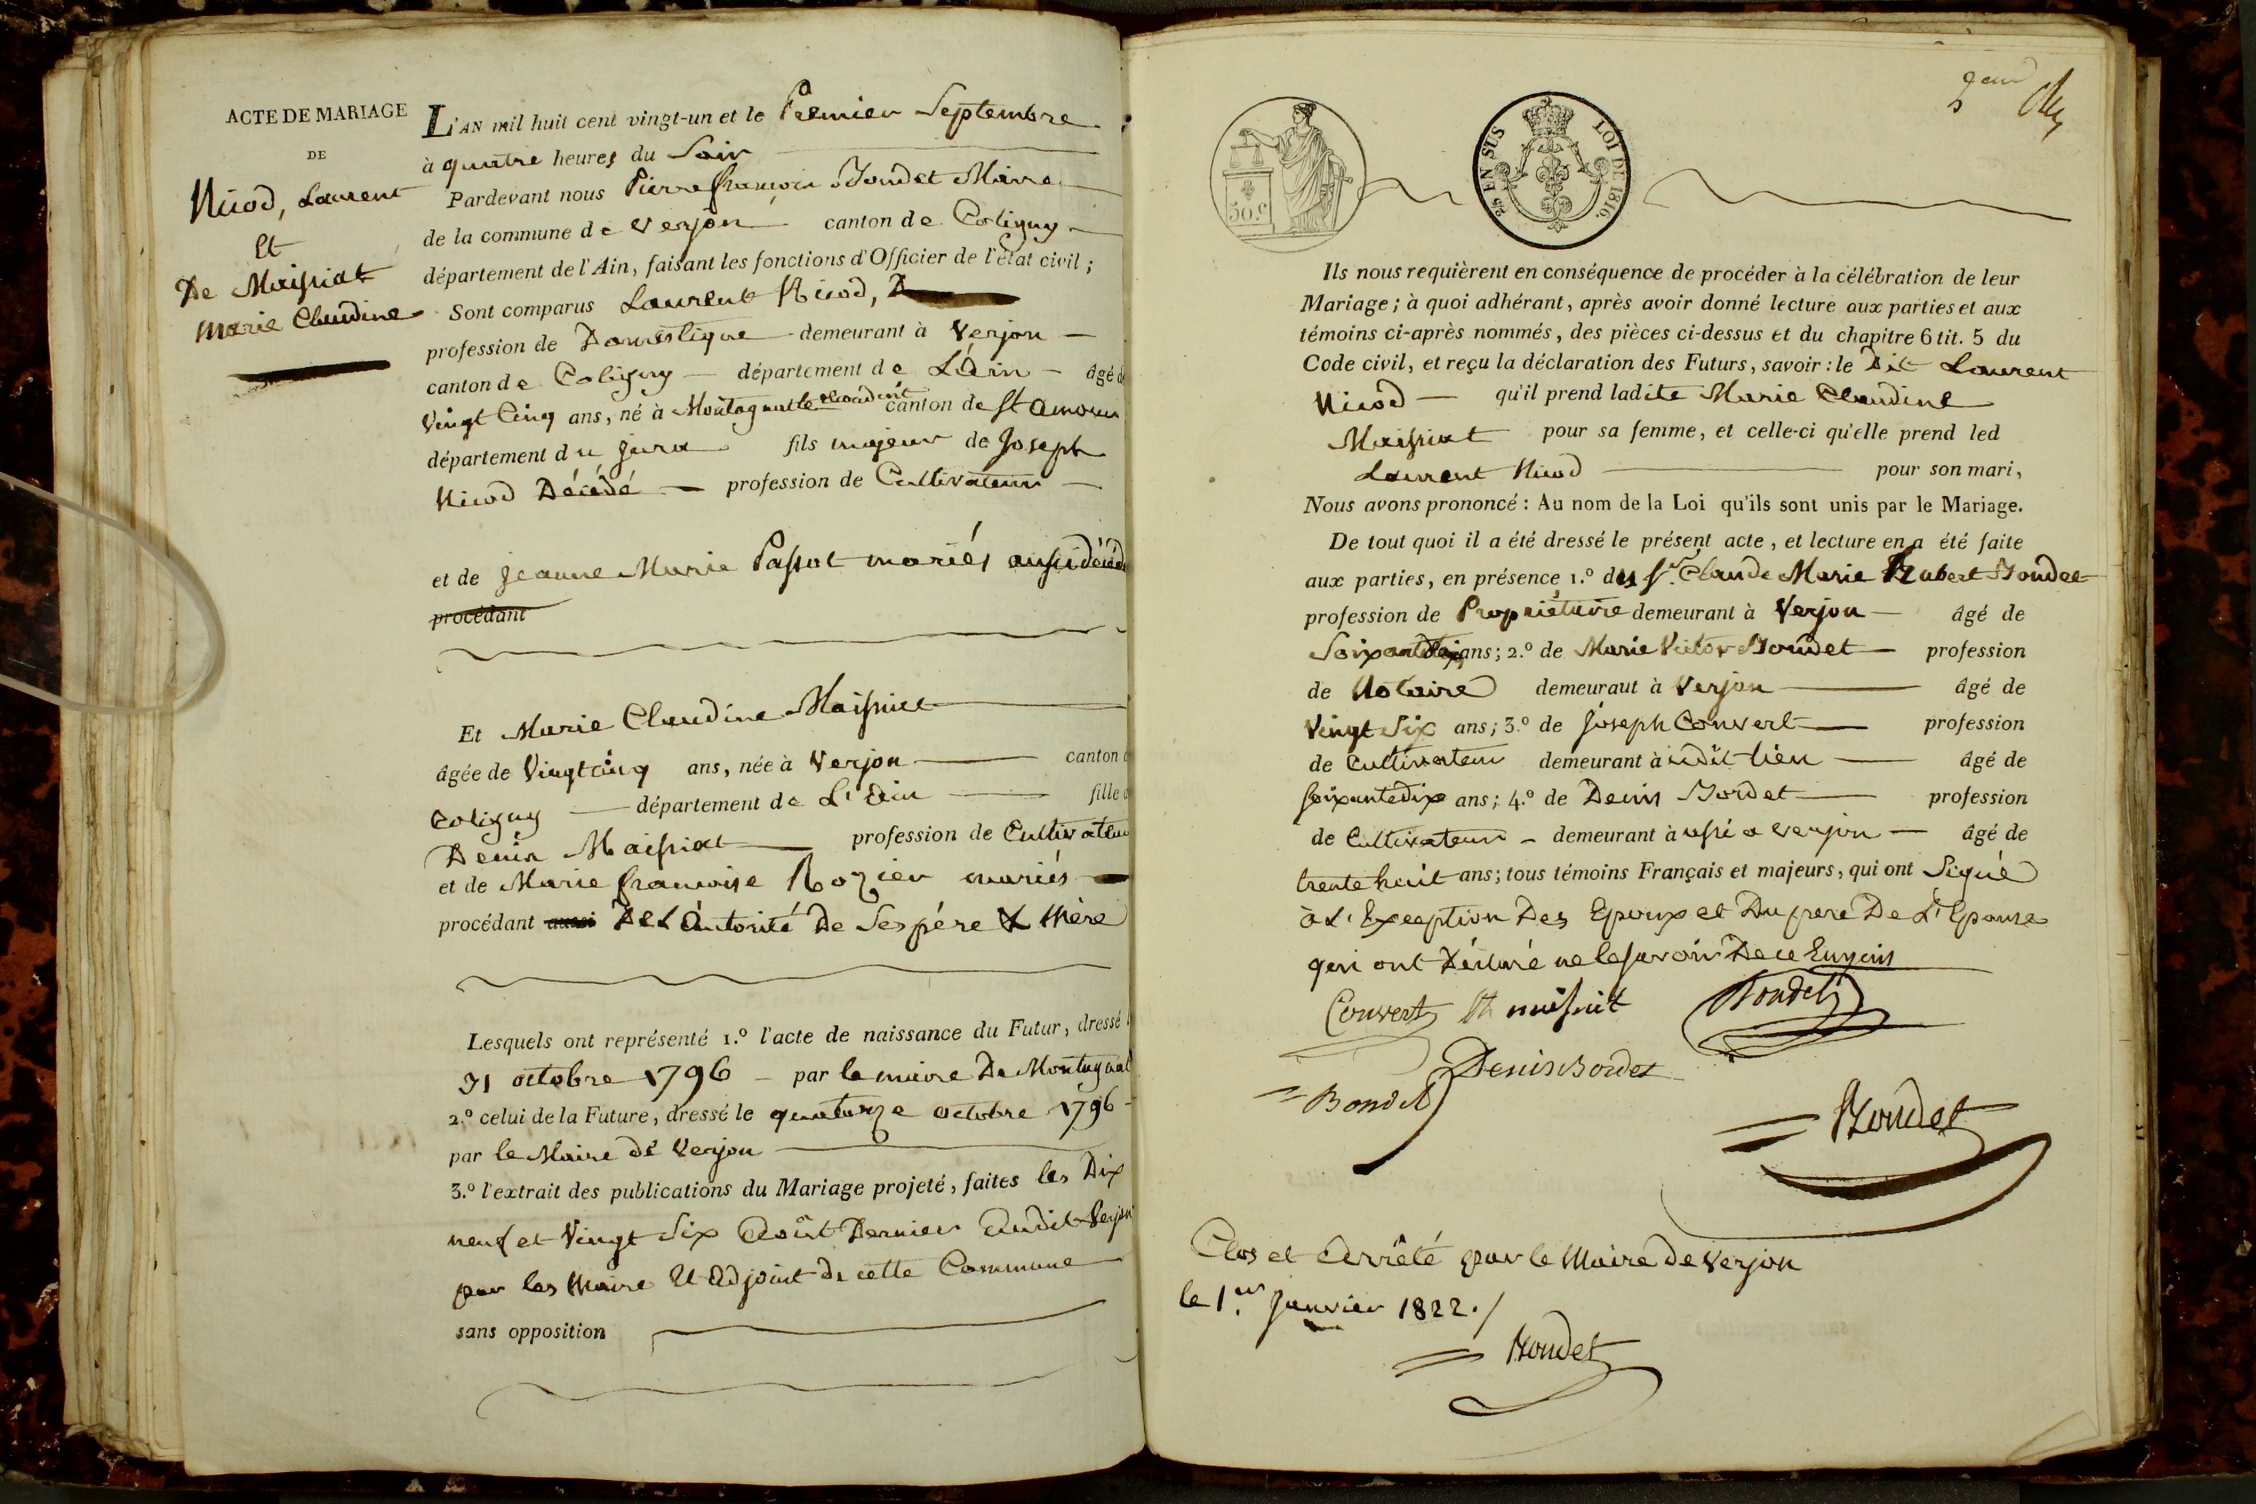 ACTE DE MARIAGE
DE
Nicod, Laurent
Et
De Maissiat
Marie Claudine
L'AN mil huit cent vingt-un et le Premier Septembre
à quatre heures du Soir
Pardevant nous Pierre françois Bondet Maire
de la commune de Verjon canton de Coligny
département de l'Ain, faisant les fonctions d'Officier de l'état civil ;
Sont comparus Laurent Nicod,
profession de Domestique demeurant à Verjon
canton de Coligny département de L'Ain âgé de
Vingt Cinq ans, né à canton de St amour
département du Jura fils majeur de Joseph
Nicod Décédé profession de Cultivateur
et de Jeanne Marie Passot mariés aussi décédé
procédant
Et Marie Claudine Maissiat
âgée de Vingt cinq ans, née à Verjon canton
Coligny département de L'Ain fille
Denis Maissiat profession de Cultivateur
et de Marie françoise Rozier mariés
procédant aussi De L'autorité De Ses père & Mère
Lesquels ont représenté 1.º l'acte de naissance du Futur, dressé
31 octobre 1796 par le maire De Montagnat
2.º celui de la Future, dressé le quatorze octobre 1796
par le Maire de Verjon
3.º l'extrait des publications du Mariage projeté, faites les Dix
neuf et Vingt Six Août Dernier Audit Verjon
par les Maire Et Adjoint de cette Commune
sans opposition
50 C
25 EN SUS
LOI DE 1816.
Ils nous requièrent en conséquence de procéder à la célébration de leur
Mariage ; à quoi adhérant, après avoir donné lecture aux parties et aux
témoins ci-après nommés, des pièces ci-dessus et du chapitre 6 tit. 5 du
Code civil, et reçu la déclaration des Futurs, savoir : le Dit Laurent
Nicod qu'il prend ladite Marie Claudine
Maissiat pour sa femme, et celle-ci qu'elle prend led
Laurent Nicod pour son mari,
Nous avons prononcé : Au nom de la Loi qu'ils sont unis par le Mariage.
De tout quoi il a été dressé le présent acte, et lecture en a été faite
aux parties, en présence 1.º des Sr. Claude Marie Hubert Bondet
profession de Propriétaire demeurant à Verjon âgé de
Soixante dix ans ; 2.º de Marie Victor Bondet profession
de Notaire demeuraut à Verjon âgé de
Vingt Six ans ; 3.º de Joseph Convert profession
de Cultivateur demeurant à sudit lieu âgé de
Soixante dix ans ; 4.º de Denis Bordet profession
de Cultivateur demeurant à ussi a verjon âgé de
trente huit ans ; tous témoins Français et majeurs, qui ont Signé
à L'Exception Des Epoux et Du pere De L'Epouse
qui ont Déclaré ne le savoir De ce Enquis
Convert Bondet
Denis Bordet
Bondet
Bondet
Clos et Arrêté par le Maire De Verjon
le 1.er Janvier 1822.
Bondet